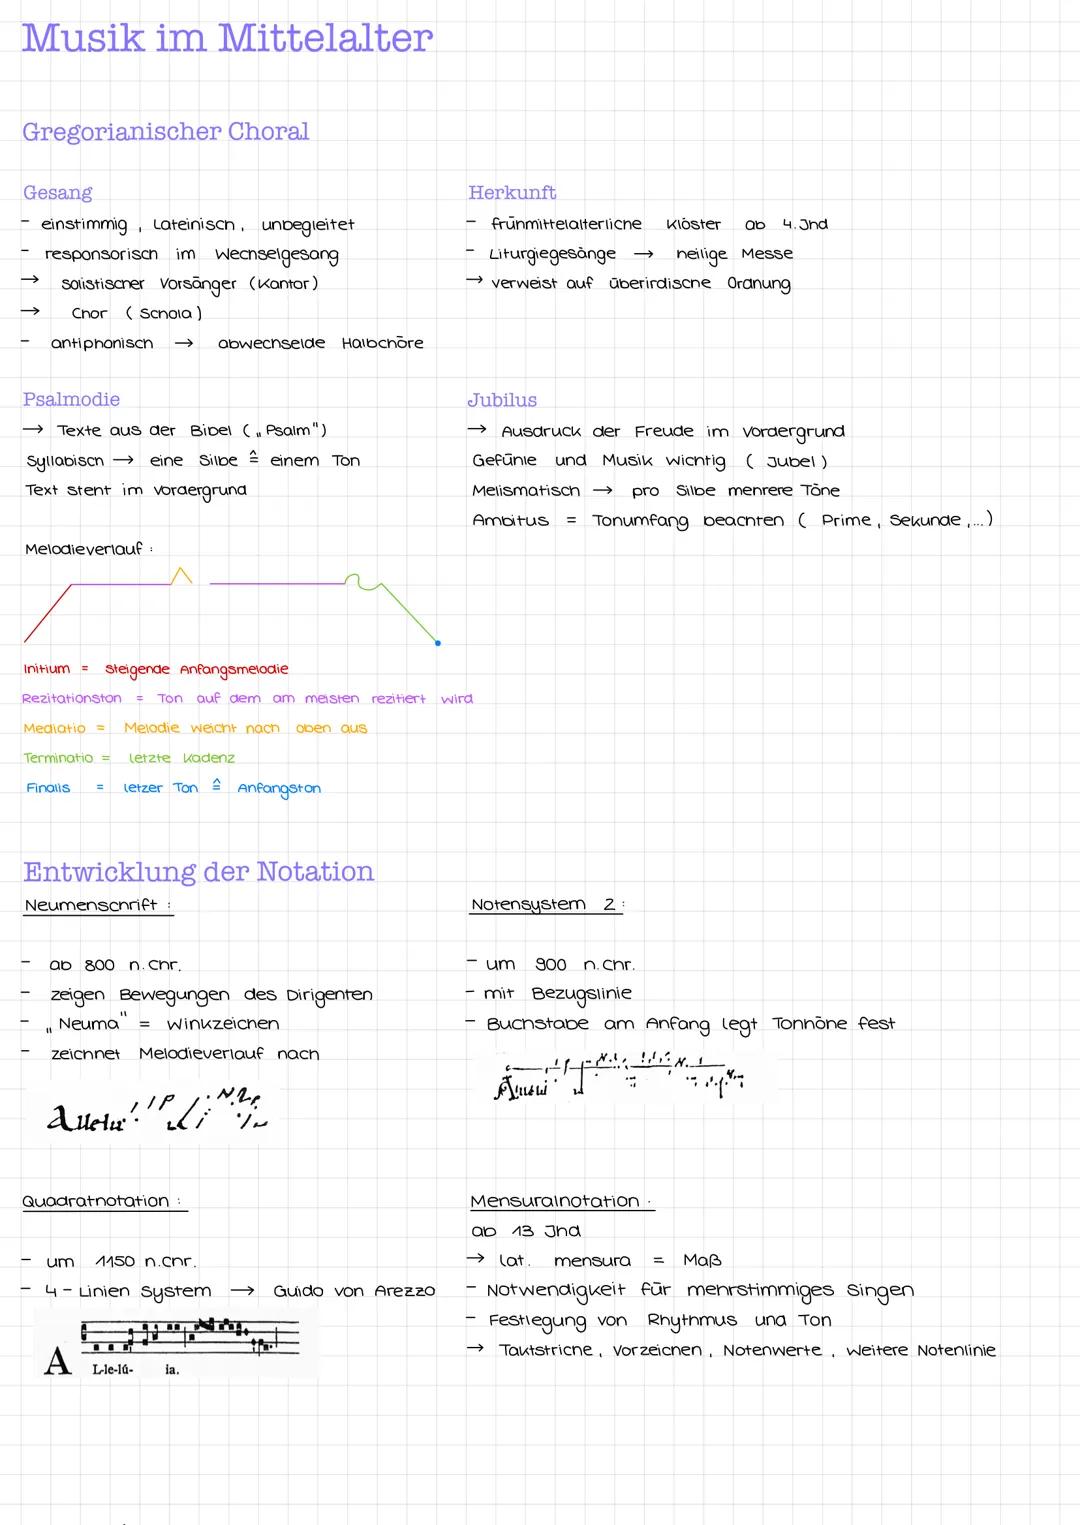 Musik im Mittelalter
Gregorianischer Choral
Gesang
- einstimmig, Lateinisch, unbegleitet
- responsorisch im Wechselgesang
→ solistischer Vorsänger (Kantor)
→ Chor (Schola)
- antiphonisch → abwechselde Halbchöre
Herkunft
- frühmittelalterliche Klöster ab 4. Jhd
- Liturgiegesänge → heilige Messe
→ verweist auf überirdische Ordnung
Psalmodie
→ Texte aus der Bibel („Psalm")
Syllabisch → eine Silbe ≙ einem Ton
Text steht im Vordergrund
Melodieverlauf:
Jubilus
→ Ausdruck der Freude im Vordergrund
Gefühle und Musik wichtig (Jubel)
Melismatisch → pro Silbe mehrere Töne
Ambitus = Tonumfang beachten (Prime, Sekunde,...)
Initium = Steigende Anfangsmelodie
Rezitationston = Ton auf dem am meisten rezitiert wird
Mediatio = Melodie weicht nach oben aus
Terminatio = letzte Kadenz
Finalis = letzer Ton ≙ Anfangston
Entwicklung der Notation
Neumenschrift:
- ab 800 n. Chr.
- zeigen Bewegungen des Dirigenten
- „Neuma" = Winkzeichen
- zeichnet Melodieverlauf nach
Notensystem 2:
- um 900 n. Chr.
- mit Bezugslinie
- Buchstabe am Anfang legt Tonhöhe fest
Quadratnotation:
- um 1150 n. Chr.
- 4-Linien System → Guido von Arezzo
A L-le-lú- ia.
Mensuralnotation.
ab 13 Jhd
→ lat. mensura = Maß
- Notwendigkeit für mehrstimmiges Singen
- Festlegung von Rhythmus und Ton
→ Taktstriche, Vorzeichen, Notenwerte, weitere Notenlinie